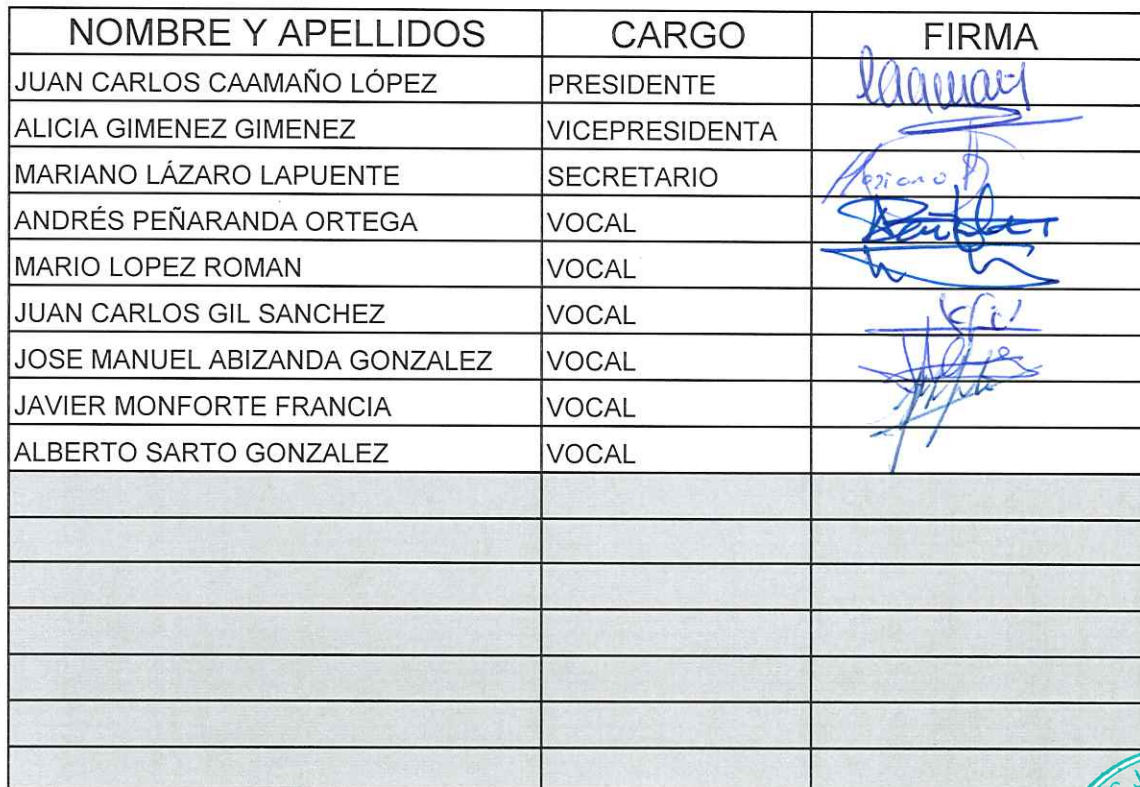 NOMBRE Y APELLIDOS CARGO FIRMA
JUAN CARLOS CAAMAÑO LÓPEZ PRESIDENTE
ALICIA GIMENEZ GIMENEZ VICEPRESIDENTA
MARIANO LÁZARO LAPUENTE SECRETARIO Mariano
ANDRÉS PEÑARANDA ORTEGA VOCAL
MARIO LOPEZ ROMAN VOCAL
JUAN CARLOS GIL SANCHEZ VOCAL
JOSE MANUEL ABIZANDA GONZALEZ VOCAL
JAVIER MONFORTE FRANCIA VOCAL
ALBERTO SARTO GONZALEZ VOCAL